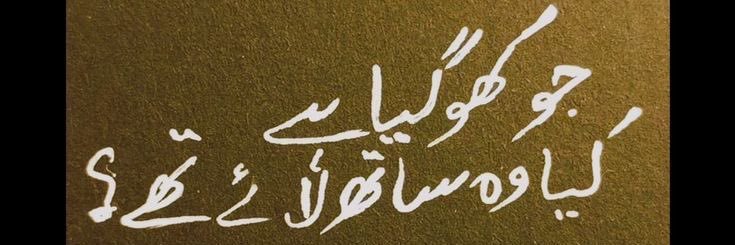 جو کھو گیا ہے
کیا وہ ساتھ لائے تھے؟